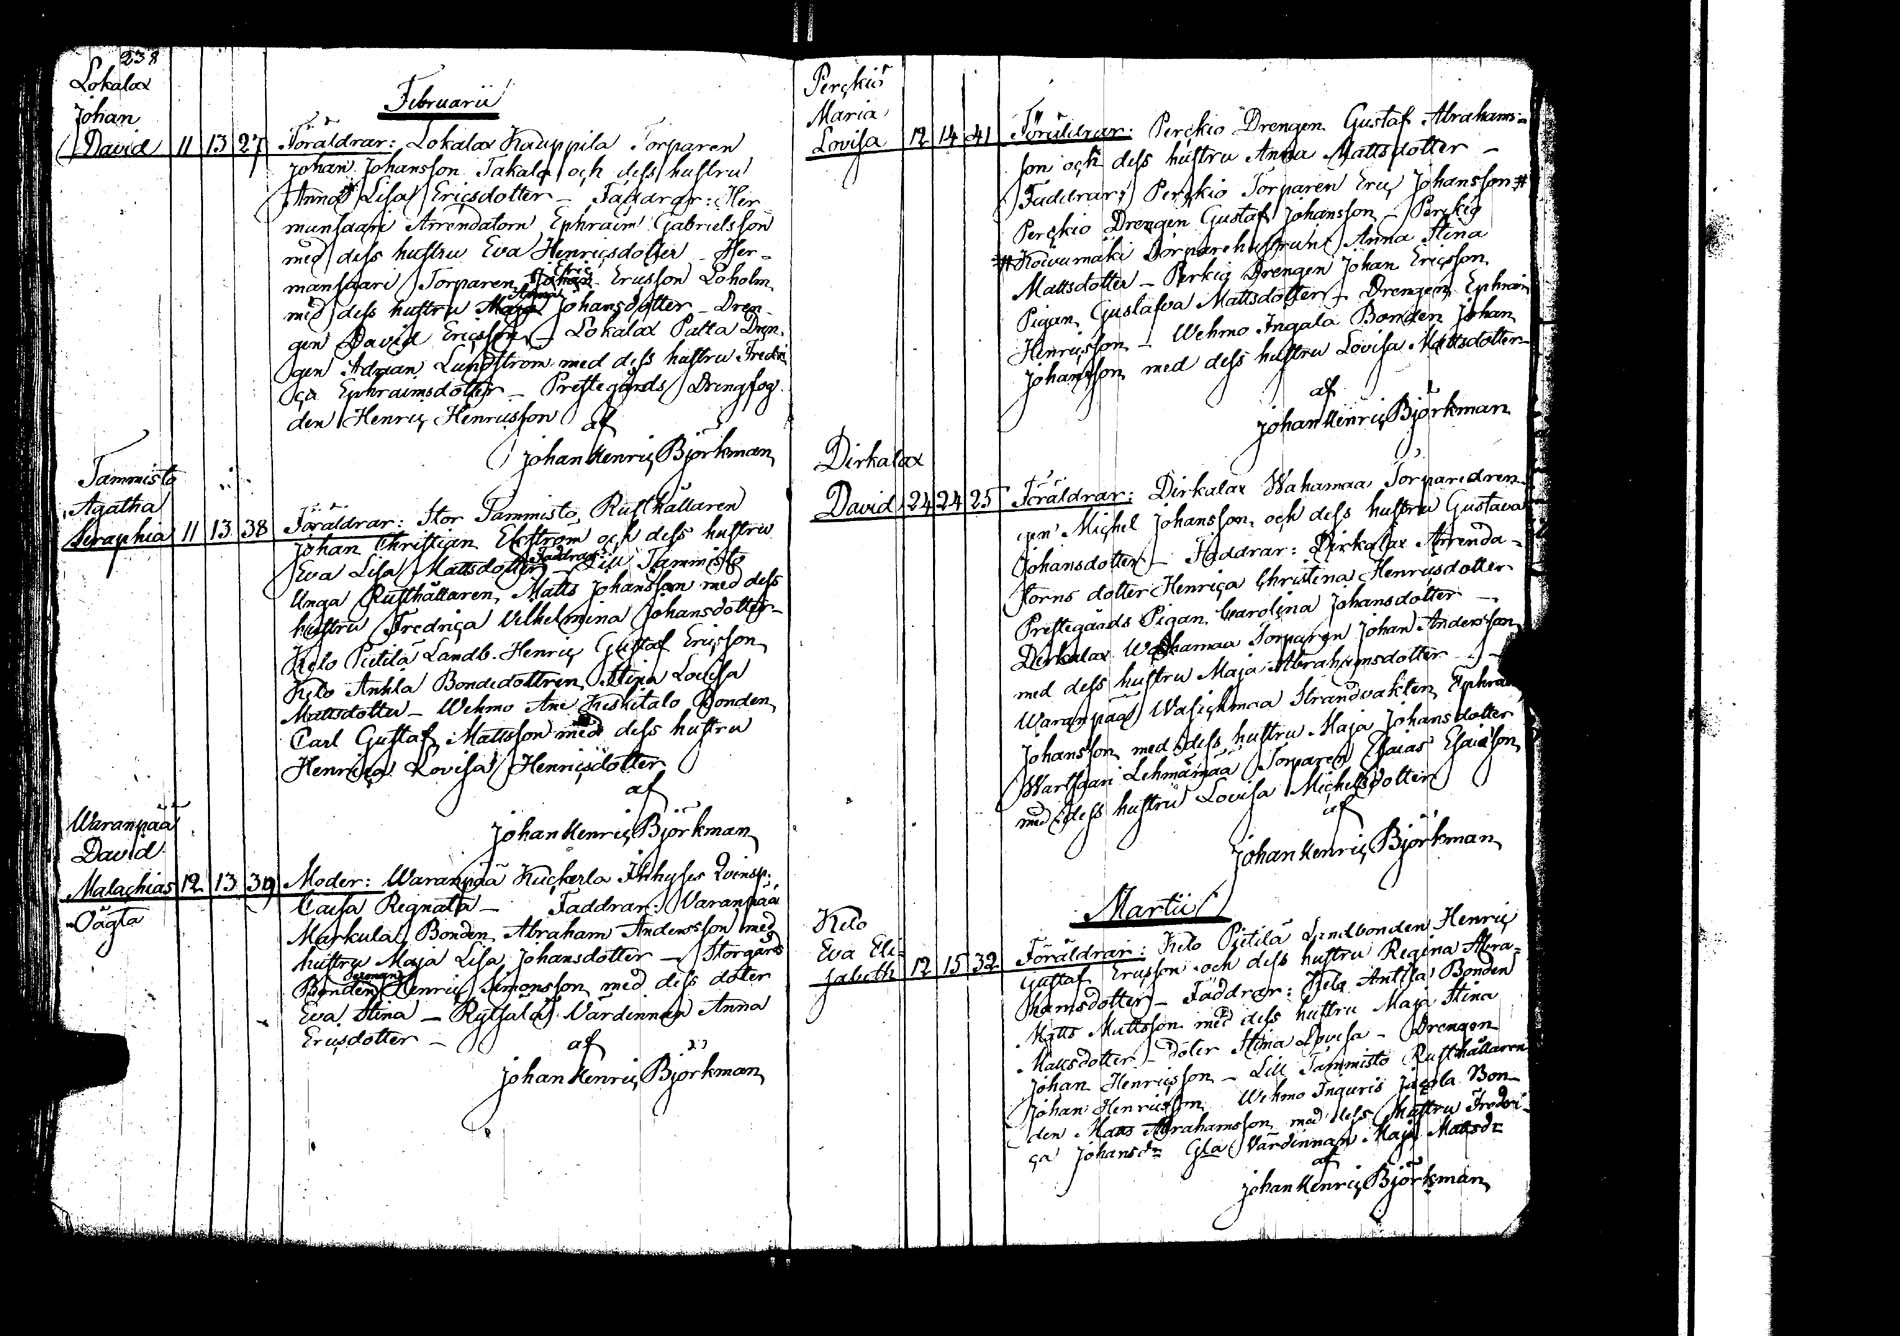 238
Februarii
Lokalax
Johan
David 11 13 27 Föräldrar: Lokalax Kauppila Torparen
Johan Johansson Takala och dess hustru
Anna Lisa Ericsdotter – Faddrar: Her
mansaari Arrendatorn Ephraim Gabrielsson
med dess hustru Eva Henricsdotter – Her-
mansaari Torparen Eric Ericsson Loholm
med dess hustru Anna Johansdotter – Dren-
gen David Ericsson – Lokalax Patta Dren
gen Adrian Lundström med dess hustru Fredri
ca Ephraimsdotter – Prestegårds Drengfog
den Henric Henricsson
af
Johan Henric Björkman
Tammisto
Agatha
Seraphia 11 13 38 Föräldrar: Stor Tammisto Rusthållaren
Johan Christian Ekström och dess hustru
Eva Lisa Mattsdotter – Faddrar: Lill Tammisto
Unga Rusthållaren Matts Johansson med dess
hustru Fredrica Vilhelmina Johansdotter –
Kelo Pietilä Landb. Henric Gustaf Ericsson
Kelo Anhla Bondedottren Stina Lovisa
Mattsdotter – Wehmo Ane Keskitalo Bonden
Carl Gustaf Mattsson med dess hustru
Henrica Lovisa Henricsdotter
af
Johan Henric Björkman
Waranpää
David
Malachias 12 13 39 Moder: Waranpää Kuckerla Inhyses Qvinsp:
Oägta
Caisa Regnata – Faddrar: Varanpää
Markula Bonden Abraham Andersson med
hustru Maja Lisa Johansdotter – Storgårds
Bonden Henric Simonsson med dess doter
Eva Stina – Rytsalä Värdinnan Anna
Ericsdotter –
af
Johan Henric Björkman
Perckiö
Maria
Lovisa 12 14 41 Föräldrar: Perckio Drengen Gustaf Abrahams-
son och dess hustru Anna Mattsdotter –
Faddrar: Perckio Torparen Eric Johansson #
Perckio Drengen Gustaf Johansson – Perckio
# Koivumäki Torparehustrun Anna Stina
Mattsdotter – Perkio Drengen Johan Ericsson
Pigan Gustafva Mattsdotter – Drengen Ephraim
Henricsson – Wehmo Ingala Bonden Johan
Johansson med dess hustru Lovisa Mattsdotter –
af
Johan Henric Björkman
Dirkalax
David 24 24 25 Föräldrar: Dirkalax Wahamaa Torparedren-
gen Michel Johansson och dess hustru Gustava
Johansdotter – Faddrar: Dirkalax Arrenda-
torns dotter Henrica Christina Henricsdotter
Prestegårds Pigan Carolina Johansdotter –
Dirkalax Wahamaa Torparen Johan Andersson
med dess hustru Maja Abrahamsdotter –
Waranpää Wasickmaa Strandvakten Ephraim
Johansson med dess hustru Maja Johansdotter
Wartsaari Lehmämaa Torparen Esaias Esaiæson
med dess hustru Lovisa Michelsdotter
af
Johan Henric Björkman
Martii
Kelo
Eva Eli-
sabeth 12 15 32 Föräldrar: Kelo Pietilä Landbonden Henric
Gustaf Ericsson och dess hustru Regina Abra-
hamsdotter – Faddrar: Kelo Antila Bonden
Matts Mattsson med dess hustru Maja Stina
Mattsdotter – doter Stina Lovisa – Drengen
Johan Henricsson – Lill Tammisto Rusthållaren
Johan Henricsson Wehmo Inguris Jacola Bon-
den Matts Abrahamsson med dess hustru Fredri-
ca Johansdr Gla Värdinnan Maja Mattsdr
af
Johan Henric Björkman